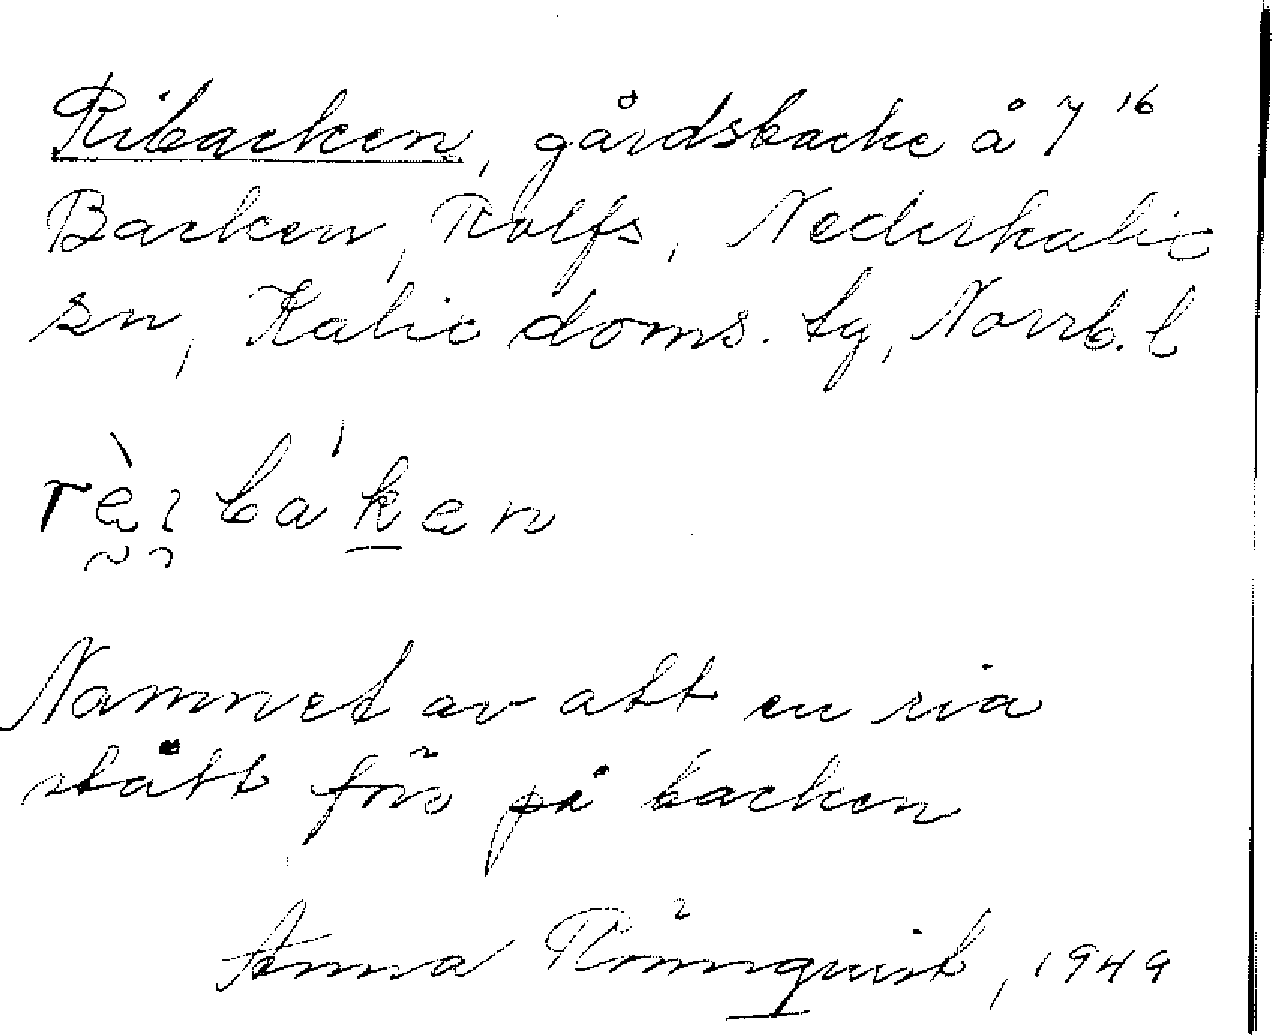 Ribacken, gårdsbacke å 7¹⁶
Backen, Rolfs, Nederkalix
sn, Kalix doms. tg, Norrb. l
Namnet av att en ria
stått förr på backen
Anna Rönnquist, 1949